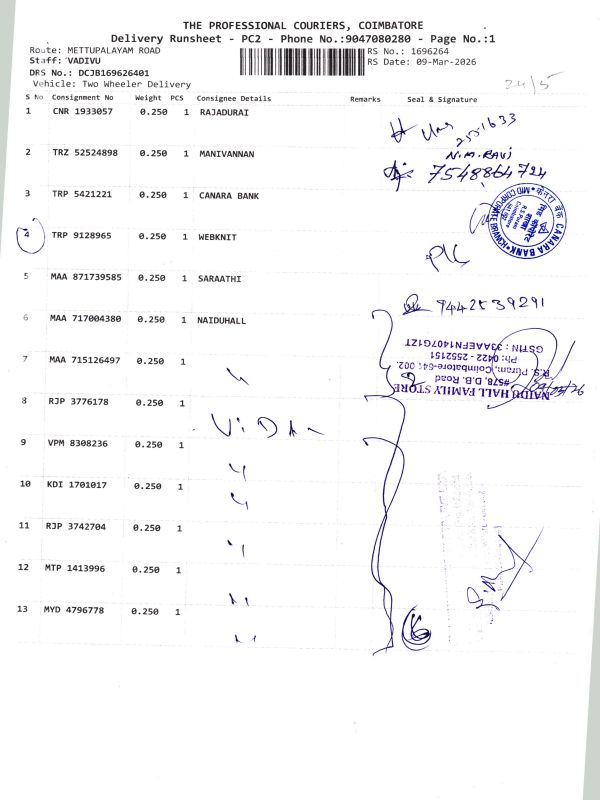 THE PROFESSIONAL COURIERS, COIMBATORE
Delivery Runsheet - PC2 - Phone No.:9047080280 - Page No.:1
Route: METTUPALAYAM ROAD RS No.: 1696264
Staff: VADIVU RS Date: 09-Mar-2026
DRS No.: DCJB169626401
Vehicle: Two Wheeler Delivery
24/5
S No Consignment No Weight PCS Consignee Details Remarks Seal & Signature
1 CNR 1933057 0.250 1 RAJADURAI
2 TRZ 52524898 0.250 1 MANIVANNAN N.M.RAVI
7548864724
3 TRP 5421221 0.250 1 CANARA BANK
केनरा बैंक CANARA BANK
MID CORPORATE BRANCH
4 TRP 9128965 0.250 1 WEBKNIT
5 MAA 871739585 0.250 1 SARAATHI
9442539291
6 MAA 717004380 0.250 1 NAIDUHALL
NAIDU HALL FAMILY STORE
#578, D.B. Road
R.S. Puram, Coimbatore-641 002.
Ph: 0422 - 2552151
GSTIN : 33AAEFN1407G1ZT
7 MAA 715126497 0.250 1
8 RJP 3776178 0.250 1
9 VPM 8308236 0.250 1
10 KDI 1701017 0.250 1
11 RJP 3742704 0.250 1
12 MTP 1413996 0.250 1
13 MYD 4796778 0.250 1